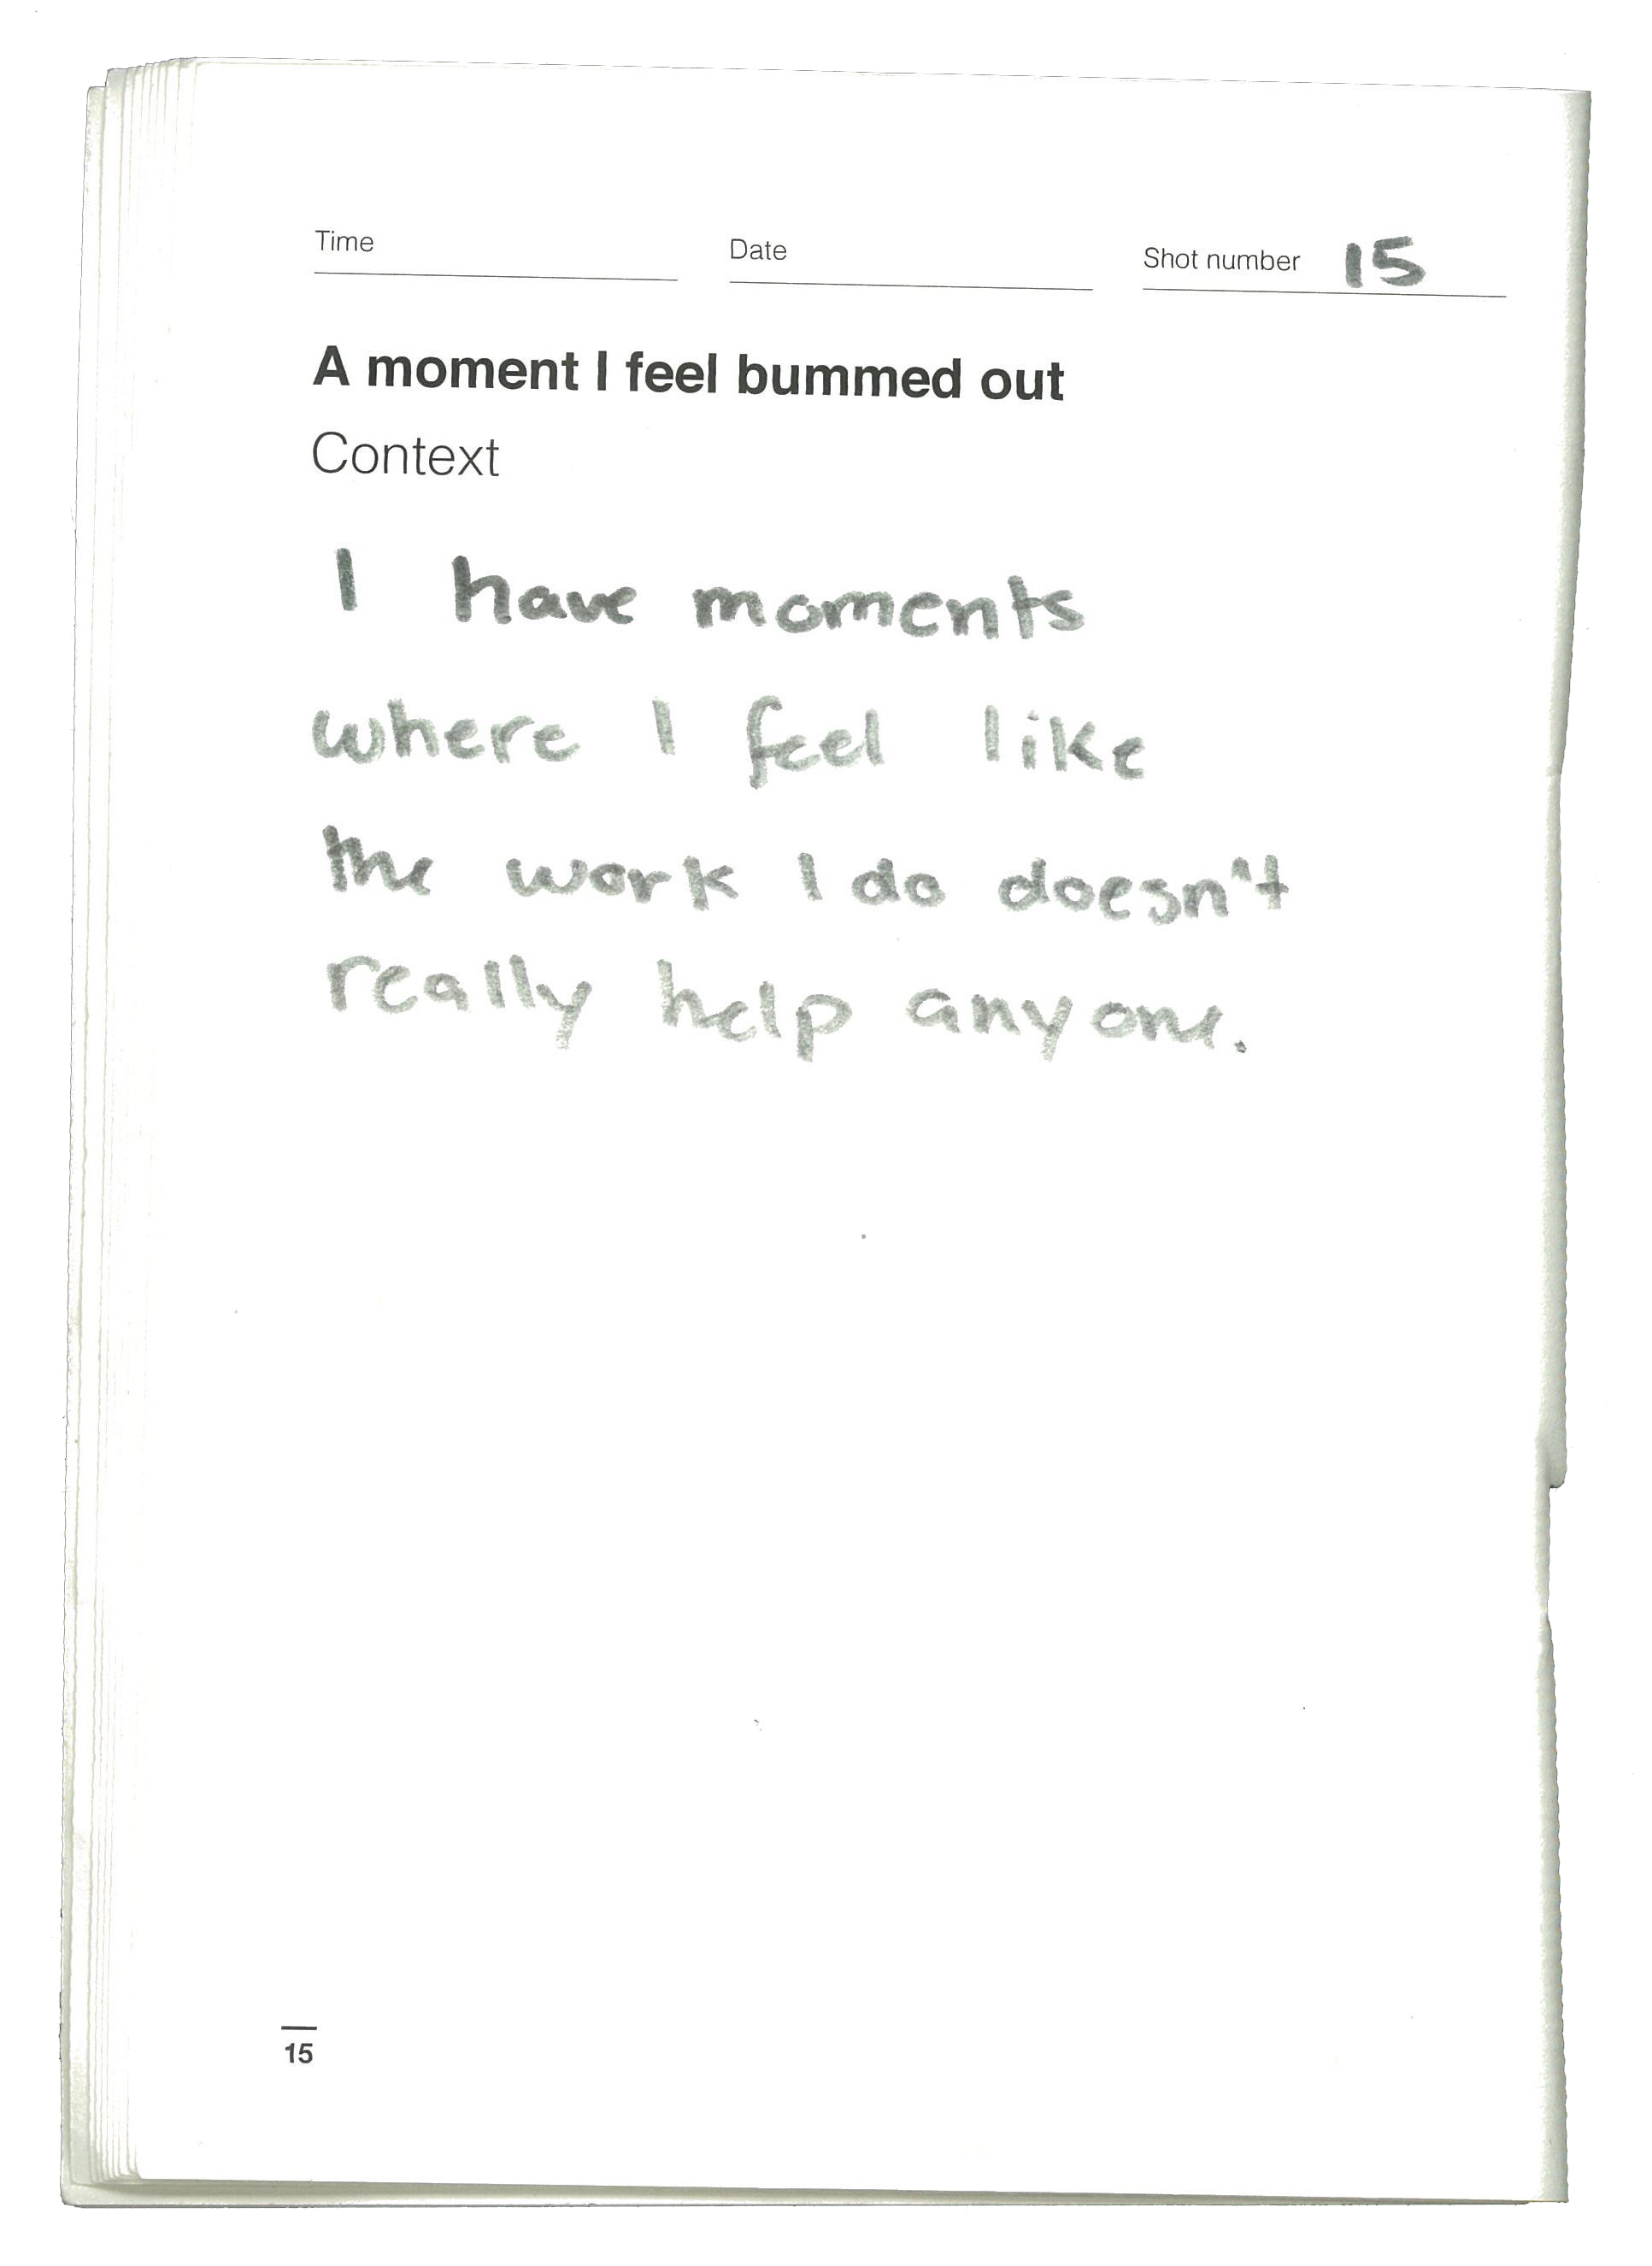 Time Date Shot number 15
A moment I feel bummed out
Context
I have moments
where I feel like
the work I do doesn't
really help anyone.
15